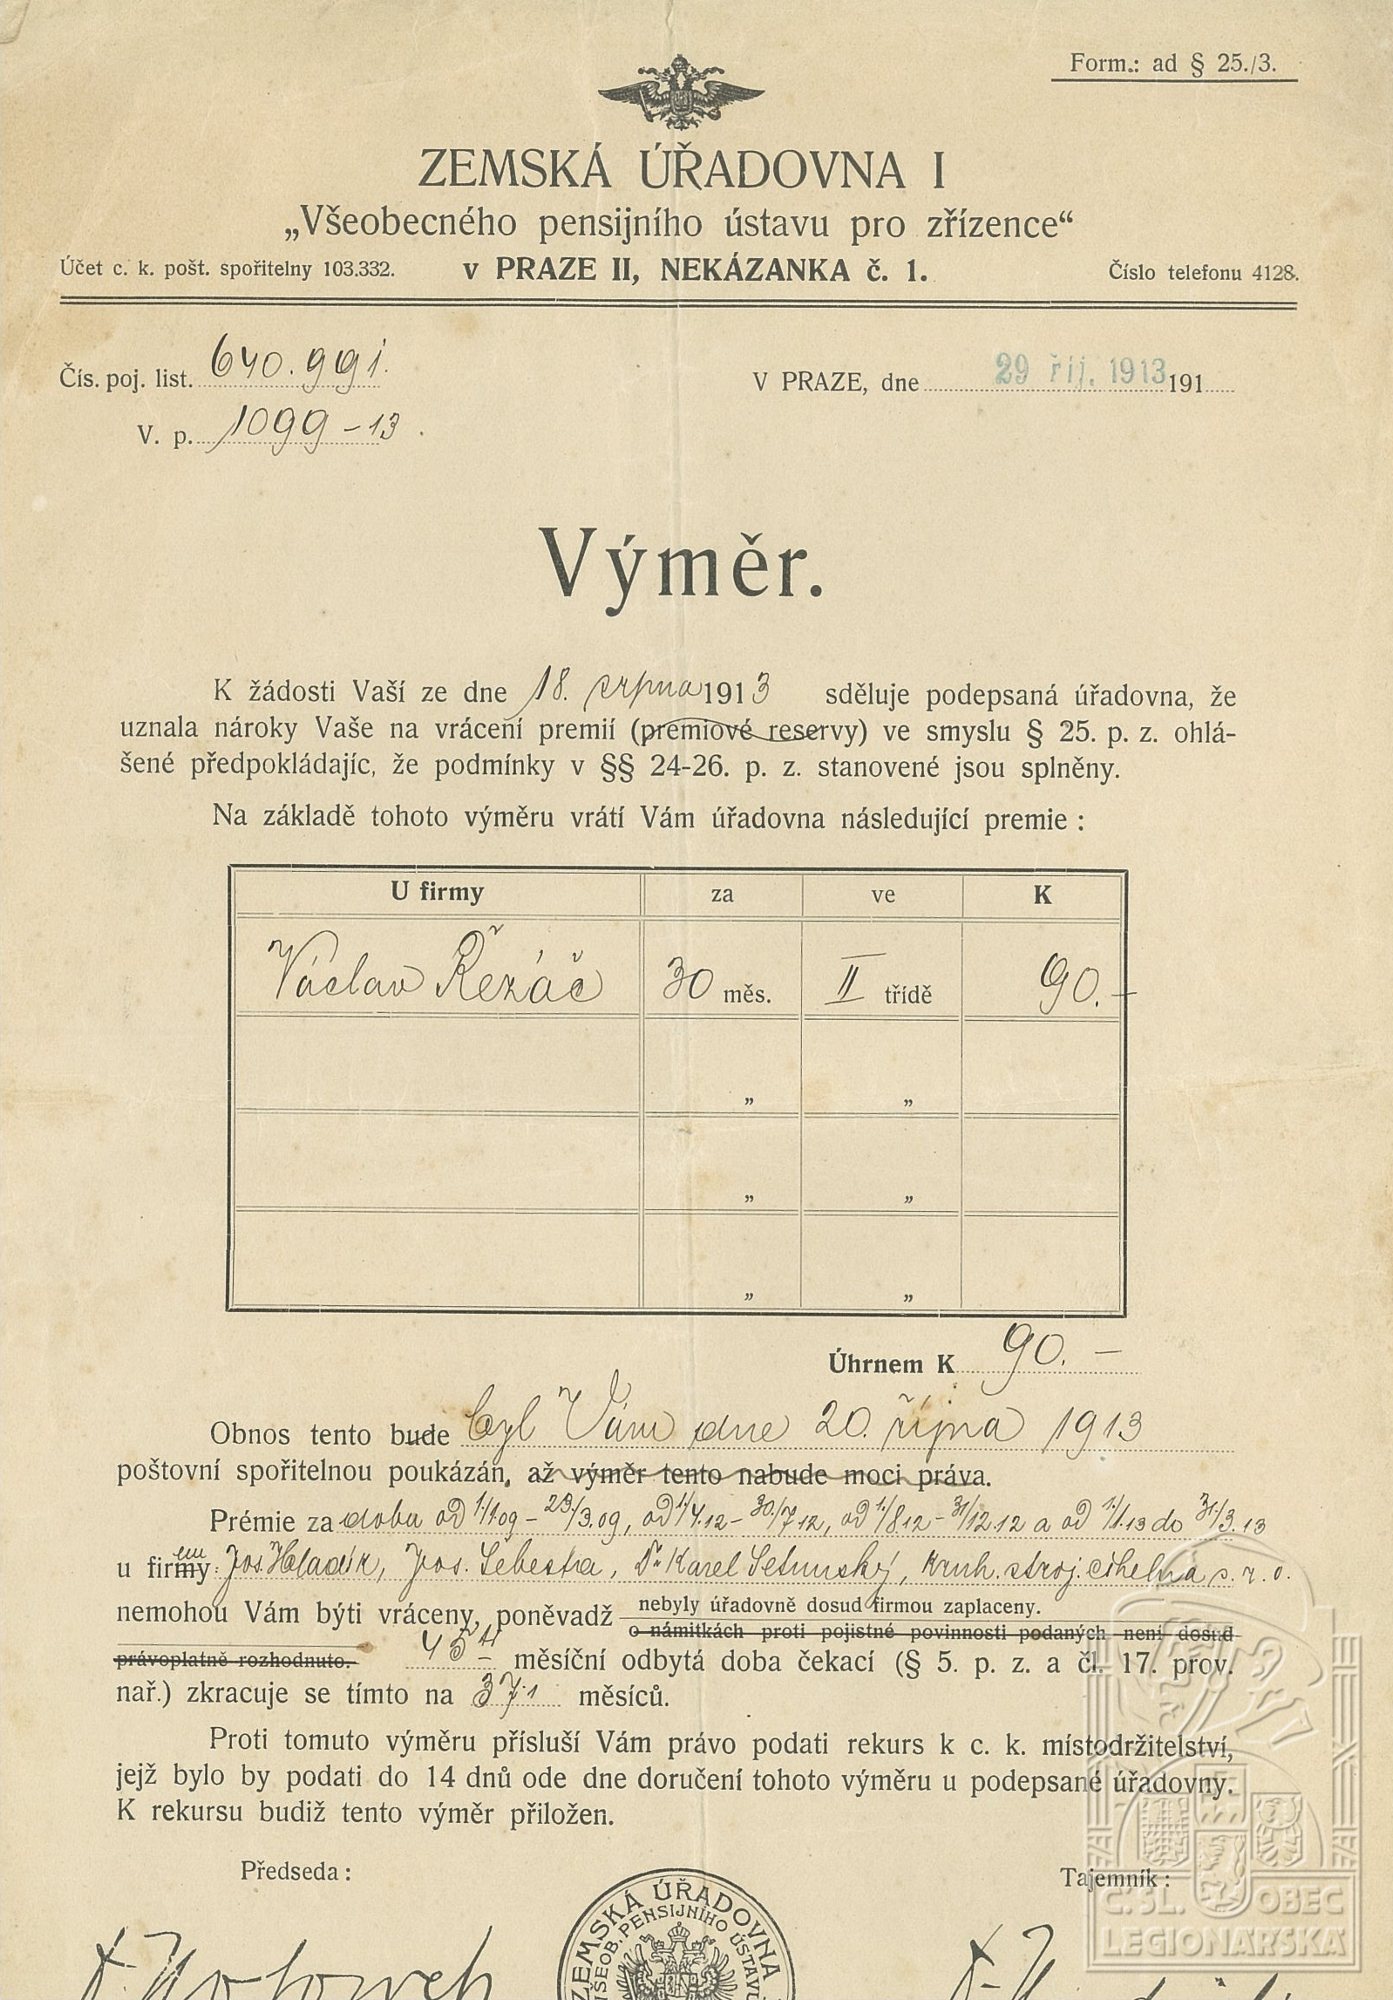 Form.: ad § 25./3.
ZEMSKÁ ÚŘADOVNA I
„Všeobecného pensijního ústavu pro zřízence“
Účet c. k. pošt. spořitelny 103.332. v PRAZE II, NEKÁZANKA č. 1. Číslo telefonu 4128.
Čís. poj. list. 640.991. V PRAZE, dne 29 říj. 1913 191
V. p. 1099-13.
Výměr.
K žádosti Vaší ze dne 18. srpna 1913 sděluje podepsaná úřadovna, že
uznala nároky Vaše na vrácení premií (premiové reservy) ve smyslu § 25. p. z. ohlá-
šené předpokládajíc, že podmínky v §§ 24-26. p. z. stanovené jsou splněny.
Na základě tohoto výměru vrátí Vám úřadovna následující premie :
U firmy za ve K
Václav Řezáč 30 měs. II třídě 90.—
„ „
„ „
„ „
Úhrnem K 90. —
Obnos tento bude byl Vám dne 20. října 1913
poštovní spořitelnou poukázán, až výměr tento nabude moci práva.
Prémie za dobu od 1./1.09 — 23./3.09, od 1./4.12 — 30./7.12, od 1./8.12 — 31./12.12 a od 1./1.13 do 31./3.13
u firmy: Jos. Hladík, Jos. Šebesta, Dr Karel , kruh. stroj. cihelna s. r. o.
nemohou Vám býti vráceny, poněvadž nebyly úřadovně dosud firmou zaplaceny.
o námitkách proti pojistné povinnosti podaných není dosud
právoplatně rozhodnuto. 45 měsíční odbytá doba čekací (§ 5. p. z. a čl. 17. prov.
nař.) zkracuje se tímto na 37 měsíců.
Proti tomuto výměru přísluší Vám právo podati rekurs k c. k. místodržitelství,
jejž bylo by podati do 14 dnů ode dne doručení tohoto výměru u podepsané úřadovny.
K rekursu budiž tento výměr přiložen.
Předseda : Tajemník :
ZEMSKÁ ÚŘADOVNA
VŠEOB. PENSIJNÍHO ÚSTAVU
Č. SL. OBEC
LEGIONÁŘSKÁ